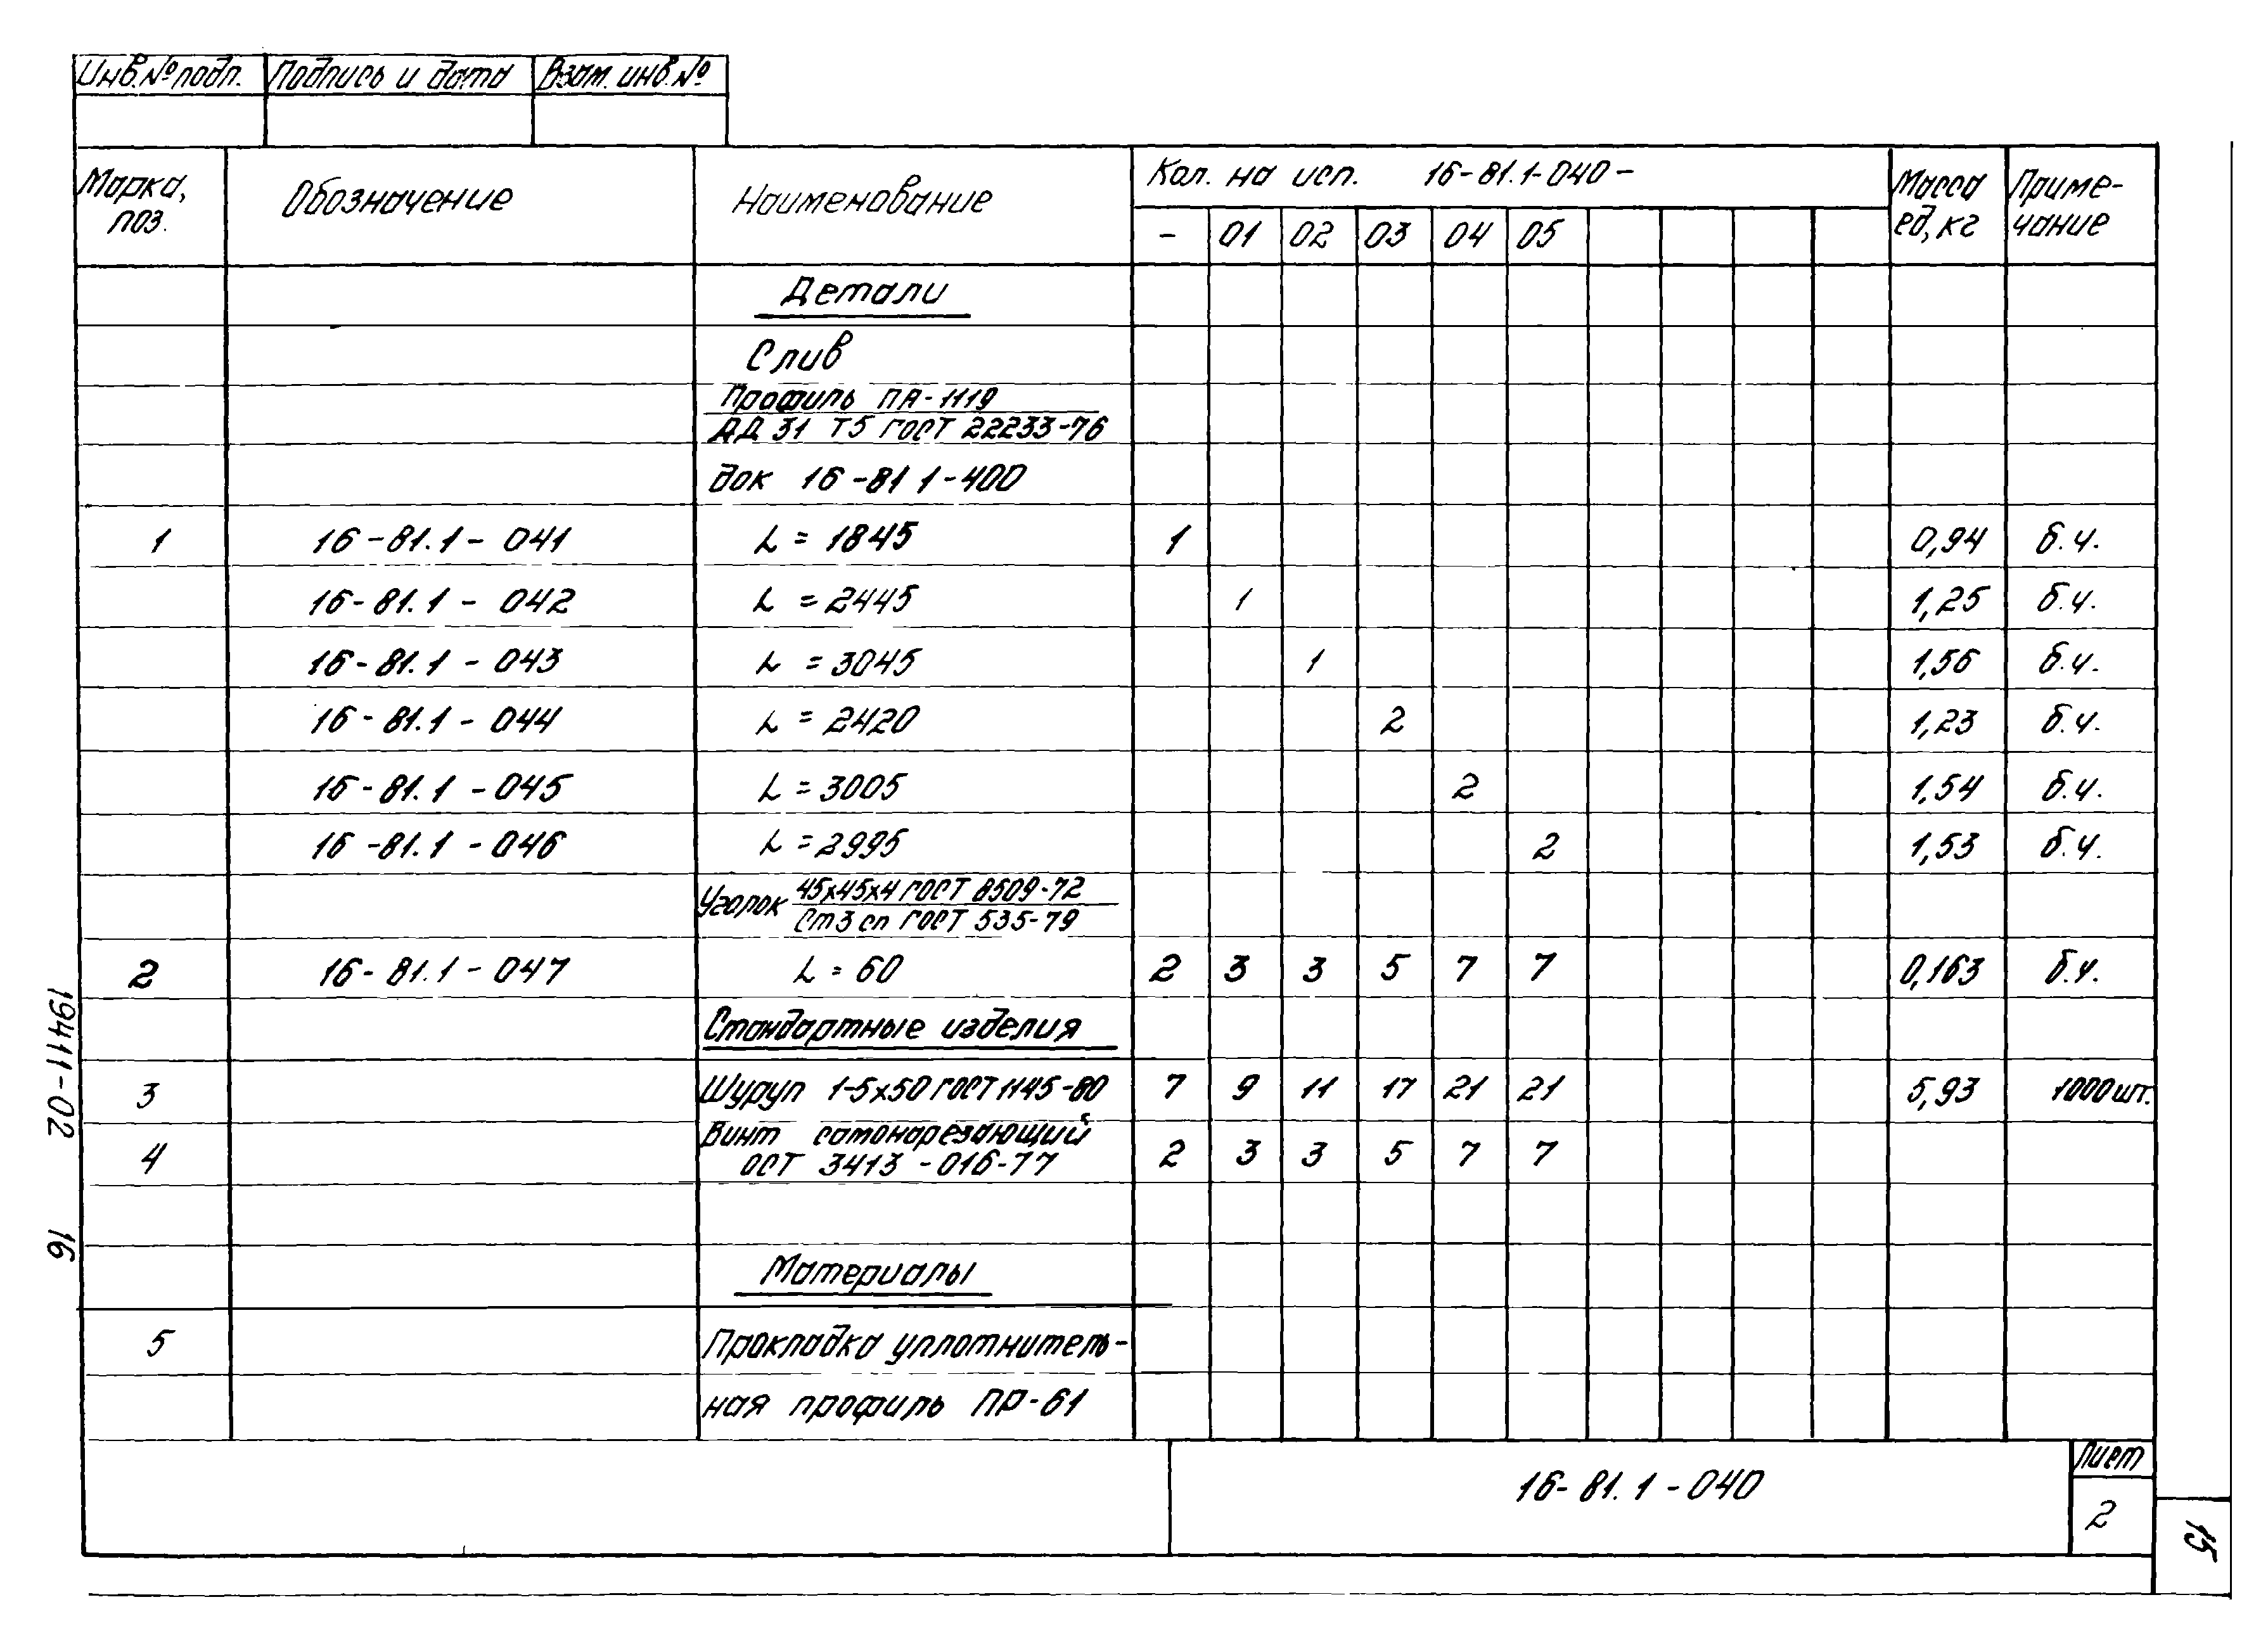 Инв.№ подп. Подпись и дата Взам. инв.№
Марка, поз. Обозначение Наименование Кол. на исп. 16-81.1-040- Масса ед, кг Приме-чание
- 01 02 03 04 05
Детали
Слив
Профиль ПА-1119
АД 31 Т5 ГОСТ 22233-76
док 16-81 1-400
1 16-81.1-041 L = 1845 1 0,94 б.ч.
16-81.1-042 L = 2445 1 1,25 б.ч.
16-81.1-043 L = 3045 1 1,56 б.ч.
16-81.1-044 L = 2420 2 1,23 б.ч.
16-81.1-045 L = 3005 2 1,54 б.ч.
16-81.1-046 L = 2995 2 1,53 б.ч.
Уголок 45х45х4 ГОСТ 8509-72
Ст3 сп ГОСТ 535-79
2 16-81.1-047 L = 60 2 3 3 5 7 7 0,163 б.ч.
Стандартные изделия
3 Шуруп 1-5х50 ГОСТ 1145-80 7 9 11 17 21 21 5,93 1000 шт.
4 Винт самонарезающий
ОСТ 3413-016-77 2 3 3 5 7 7
Материалы
5 Прокладка уплотнитель-
ная профиль ПР-61
16-81.1-040
Лист
2
15
19411-02 16